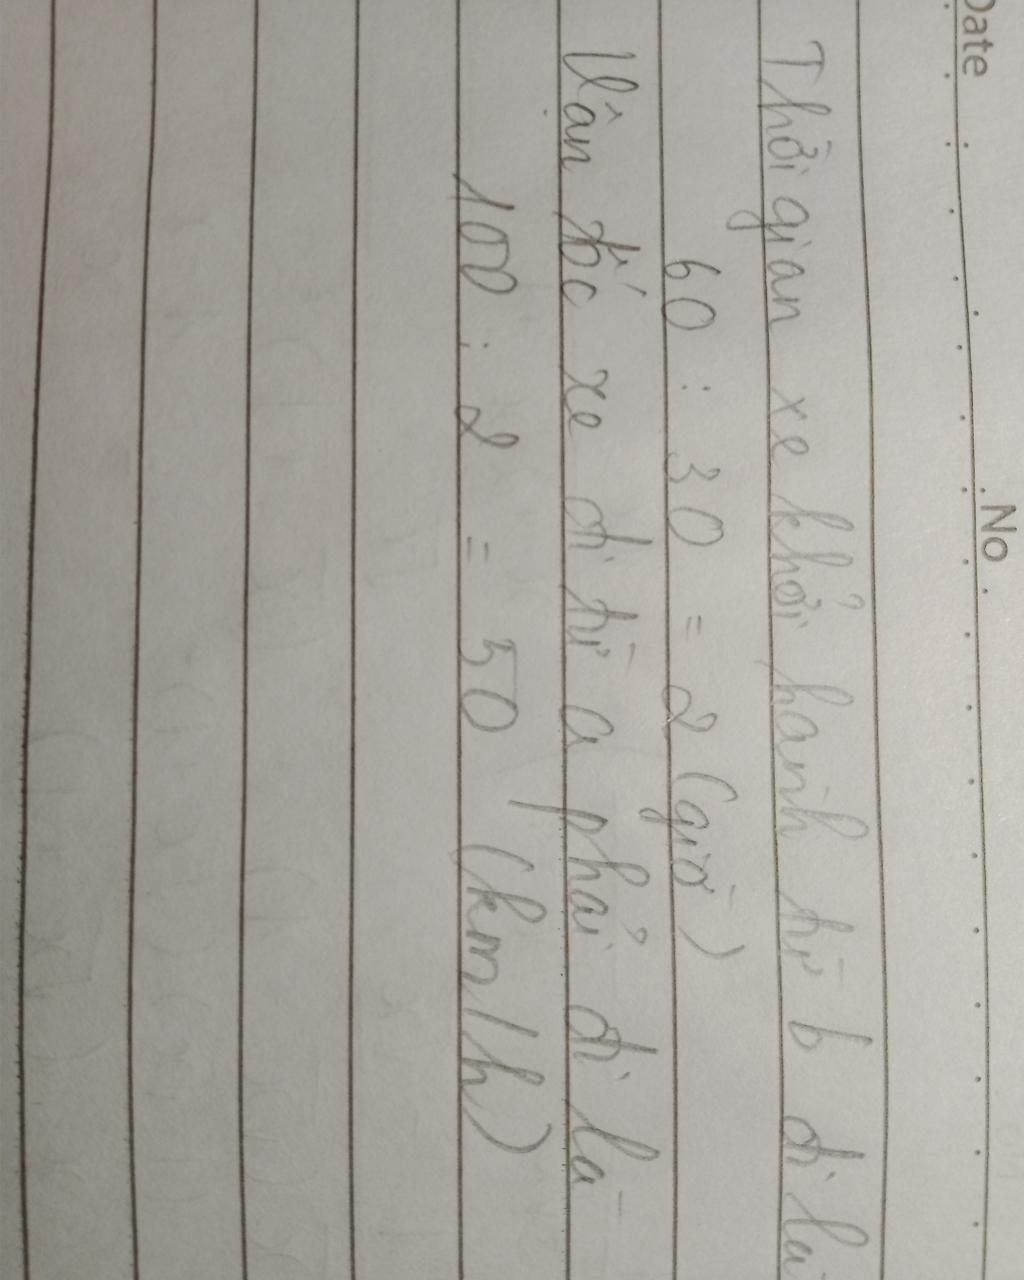 Date . No .
Thời gian xe khởi hành từ b đi là
60 : 30 = 2 (giờ)
Vận tốc xe đi từ a phải đi là
100 : 2 = 50 (km/h)